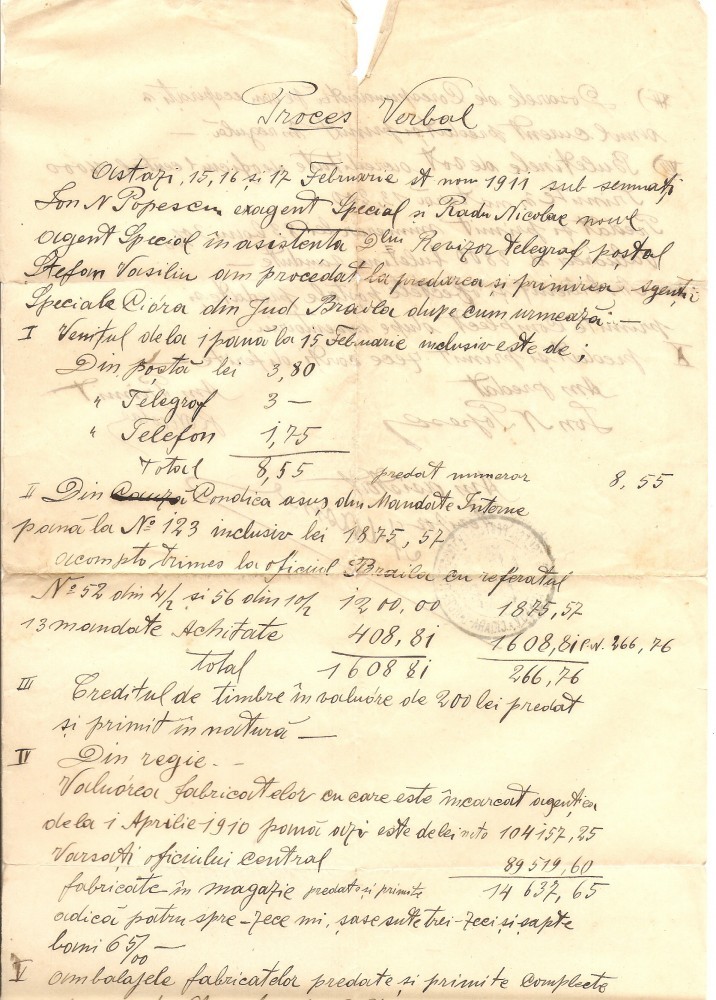 Proces Verbal
Astazi, 15, 16 și 17 Februarie st nou 1911 sub semnați
Ion N Popescu exagent Special și Radu Nicolae noul
agent Special în asistenta Dlui Revizor telegraf poștal
Ștefan Vasiliu am procedat la predarea și primirea Agenții
Speciale Cióra din Jud Braila dupe cum urmează: —
I Venitul de la 1 pană la 15 Februarie inclusiv este de;
Din poștă lei 3,80
" Telegraf 3 —
" Telefon 1,75
Total 8,55 predat numerar 8,55
II Din Condica asupra din Mandate Interne
pană la No 123 inclusiv lei 1875,57
acompto trimes la oficiul Braila cu referatul
No 52 din 4/2 și 56 din 10/2 1200,00 1875,57
13 mandate Achitate 408,81 1608,81 p.n. 266,76
total 1608 81 266,76
III Creditul de timbre în valuóre de 200 lei predat
și primit în natură —
IV Din regie. —
Valuórea fabricatelor cu care este încarcat agenția
de la 1 Aprilie 1910 pană azi este de lei neto 104157,25
Varsați oficiului central 89519,60
fabricate în magazie predate și primite 14637,65
adică patru spre-zece mi, șase sute trei-zeci și șapte
bani 65/00 —
V ambalajele fabricatelor predate și primite complecte